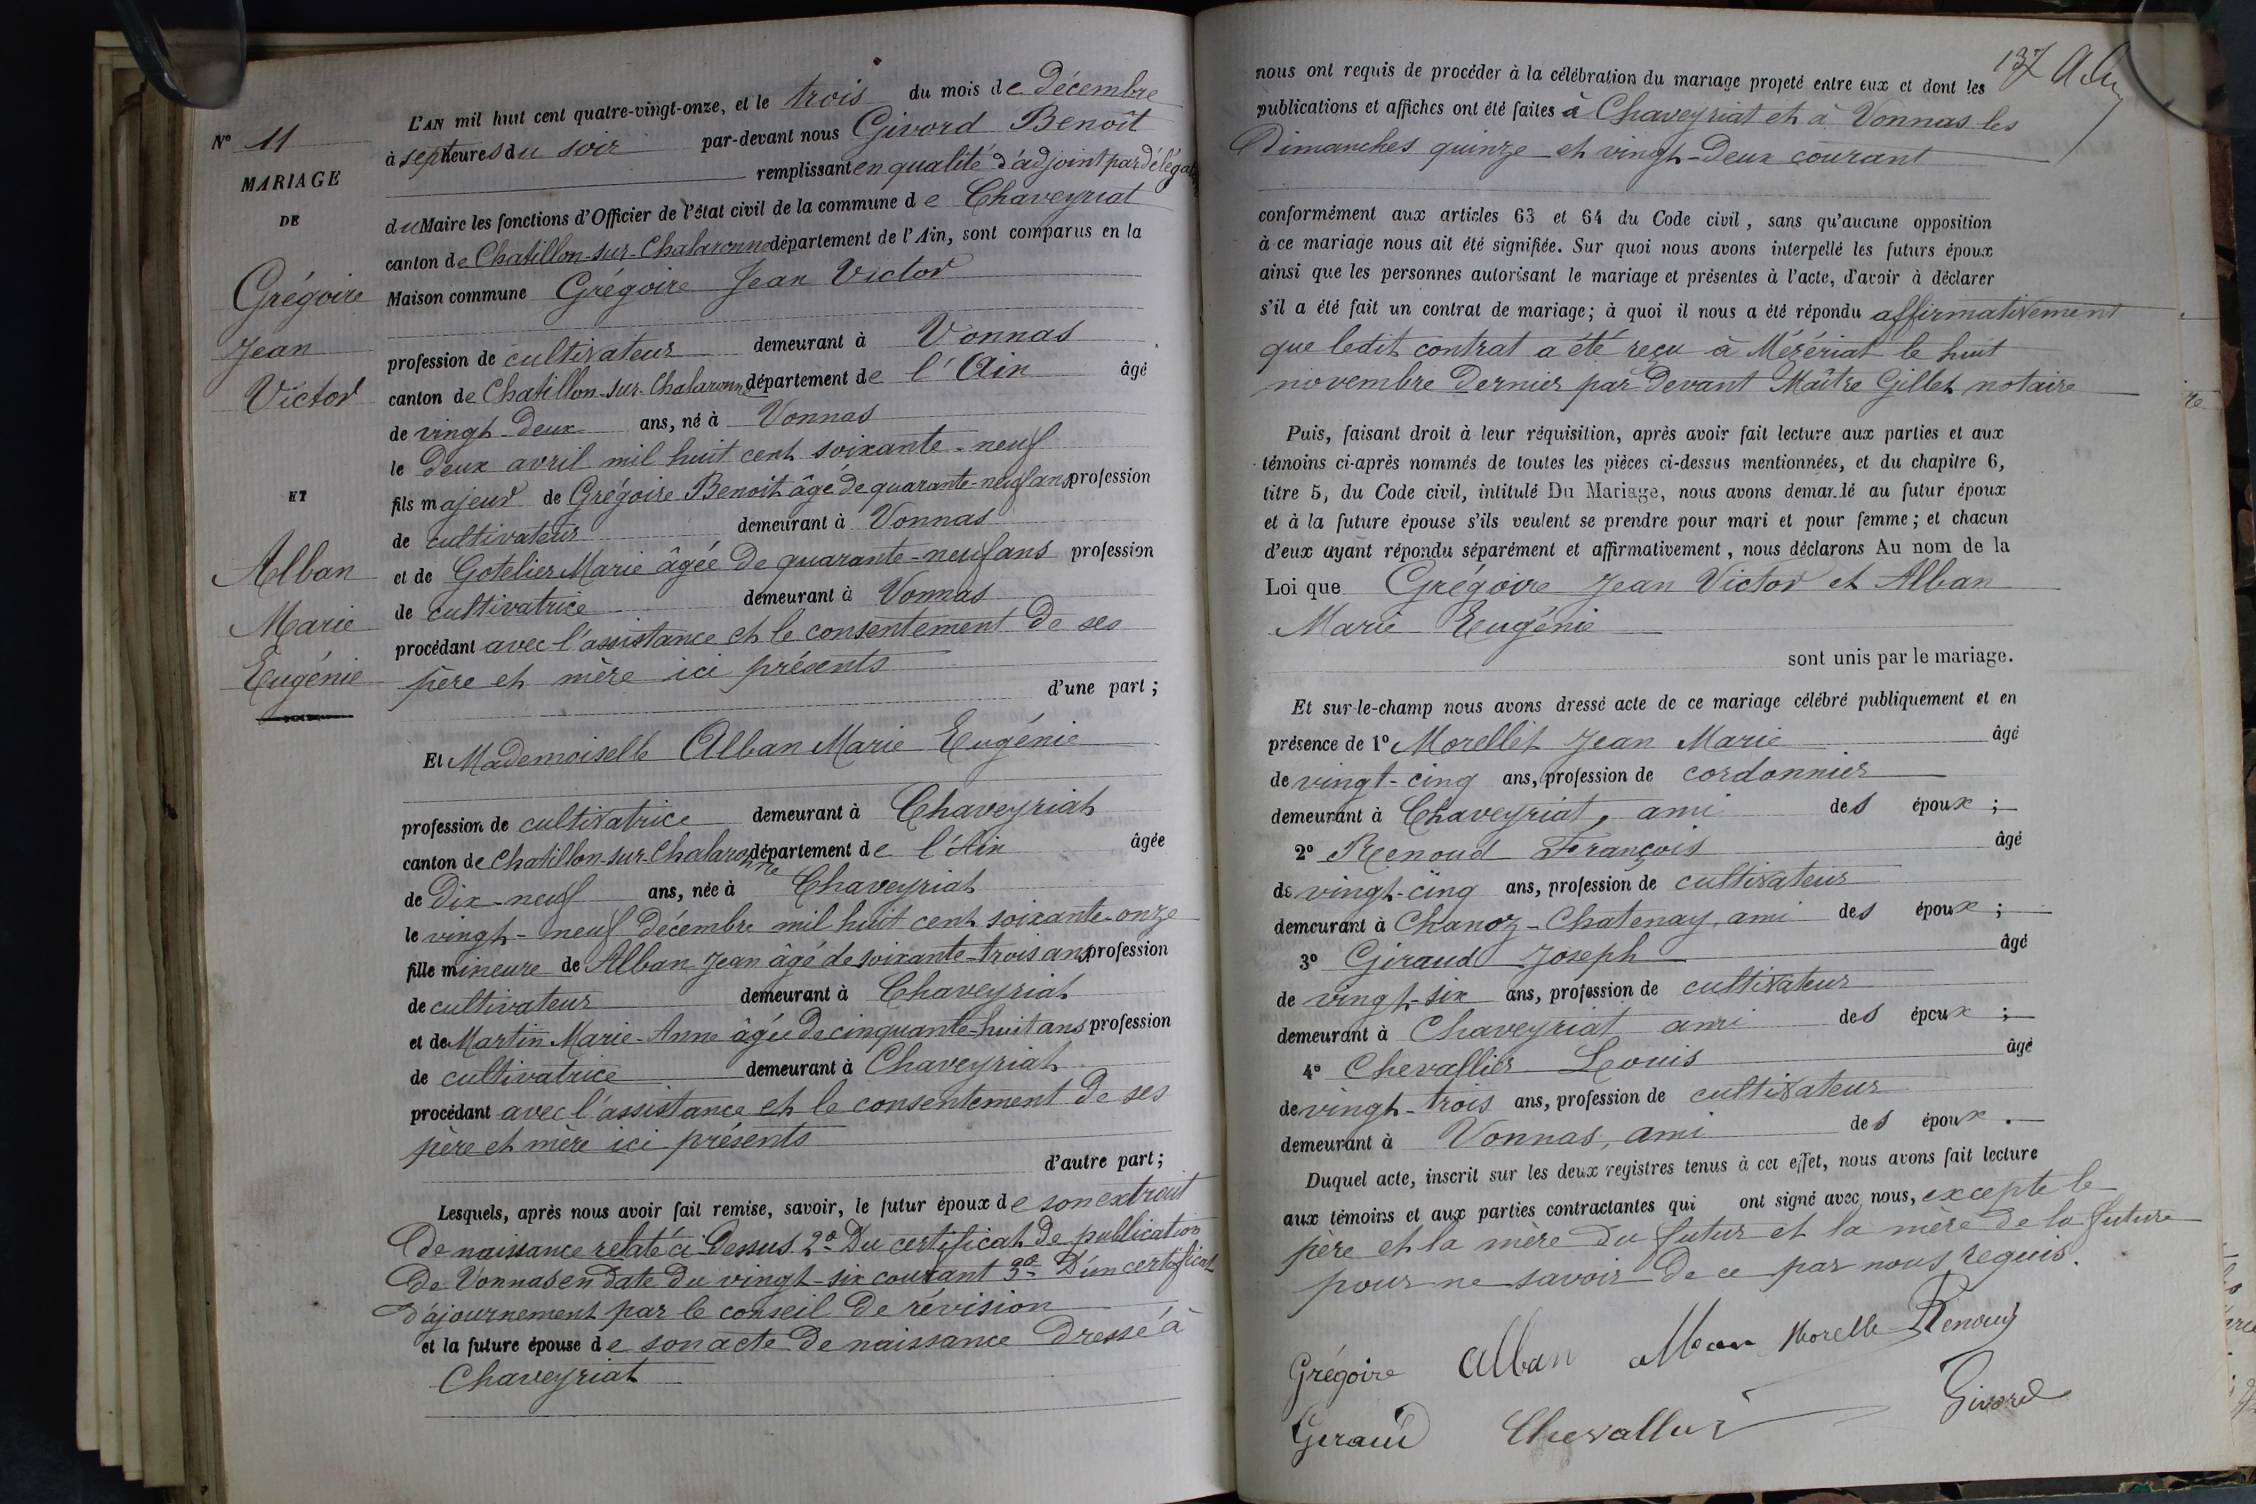 N° 11
MARIAGE
DE
Grégoire
Jean
Victor
ET
Alban
Marie
Eugénie
L'AN mil huit cent quatre-vingt-onze, et le trois du mois de Décembre
à sept heures du soir par-devant nous Givord Benoît
remplissant en qualité d'adjoint par délégation
du Maire les fonctions d'Officier de l'état civil de la commune de Chaveyriat
canton de Chatillon-sur-Chalaronne département de l'Ain, sont comparus en la
Maison commune Grégoire Jean Victor
profession de cultivateur demeurant à Vonnas
canton de Chatillon-sur-Chalaronne département de l'Ain âgé
de vingt-deux ans, né à Vonnas
le deux avril mil huit cent soixante-neuf
fils majeur de Grégoire Benoit âgé de quarante-neuf ans profession
de cultivateur demeurant à Vonnas
et de Gotelier Marie âgée de quarante-neuf ans profession
de cultivatrice demeurant à Vonnas
procédant avec l'assistance et le consentement de ses
père et mère ici présents
d'une part ;
Et Mademoiselle Alban Marie Eugénie
profession de cultivatrice demeurant à Chaveyriat
canton de Chatillon-sur-Chalaronne département de l'Ain âgée
de Dix-neuf ans, née à Chaveyriat
le vingt-neuf décembre mil huit cent soixante-onze
fille mineure de Alban Jean âgé de soixante-trois ans profession
de cultivateur demeurant à Chaveyriat
et de Martin Marie-Anne âgée de cinquante-huit ans profession
de cultivatrice demeurant à Chaveyriat
procédant avec l'assistance et le consentement de ses
père et mère ici présents
d'autre part ;
Lesquels, après nous avoir fait remise, savoir, le futur époux de son extrait
de naissance relaté ci-dessus 2° Du certificat de publication
de Vonnas en date du vingt-six courant 3° D'un certificat
d'ajournement par le conseil de révision
et la future épouse de son acte de naissance dressé à
Chaveyriat
137
nous ont requis de procéder à la célébration du mariage projeté entre eux et dont les
publications et affiches ont été faites à Chaveyriat et à Vonnas les
Dimanches quinze et vingt-deux courant
conformément aux articles 63 et 64 du Code civil, sans qu'aucune opposition
à ce mariage nous ait été signifiée. Sur quoi nous avons interpellé les futurs époux
ainsi que les personnes autorisant le mariage et présentes à l'acte, d'avoir à déclarer
s'il a été fait un contrat de mariage ; à quoi il nous a été répondu affirmativement
que ledit contrat a été reçu à Mézériat le huit
novembre dernier par-devant Maître Gillet notaire
Puis, faisant droit à leur réquisition, après avoir fait lecture aux parties et aux
témoins ci-après nommés de toutes les pièces ci-dessus mentionnées, et du chapitre 6,
titre 5, du Code civil, intitulé Du Mariage, nous avons demandé au futur époux
et à la future épouse s'ils veulent se prendre pour mari et pour femme ; et chacun
d'eux ayant répondu séparément et affirmativement, nous déclarons Au nom de la
Loi que Grégoire Jean Victor et Alban
Marie Eugénie
sont unis par le mariage.
Et sur-le-champ nous avons dressé acte de ce mariage célébré publiquement et en
présence de 1° Morellet Jean Marie âgé
de vingt-cinq ans, profession de cordonnier
demeurant à Chaveyriat, ami des époux ;
2° Renoud François âgé
de vingt-cinq ans, profession de cultivateur
demeurant à Chanoz-Chatenay, ami des époux ;
3° Giraud Joseph âgé
de vingt-six ans, profession de cultivateur
demeurant à Chaveyriat ami des époux ;
4° Chevallier Louis âgé
de vingt-trois ans, profession de cultivateur
demeurant à Vonnas, ami des époux .
Duquel acte, inscrit sur les deux registres tenus à cet effet, nous avons fait lecture
aux témoins et aux parties contractantes qui ont signé avec nous, excepte le
père et la mère du futur et la mère de la future
pour ne savoir de ce par nous requis.
Grégoire Alban Alban Morelle Renoud
Giraud Chevallier Givord